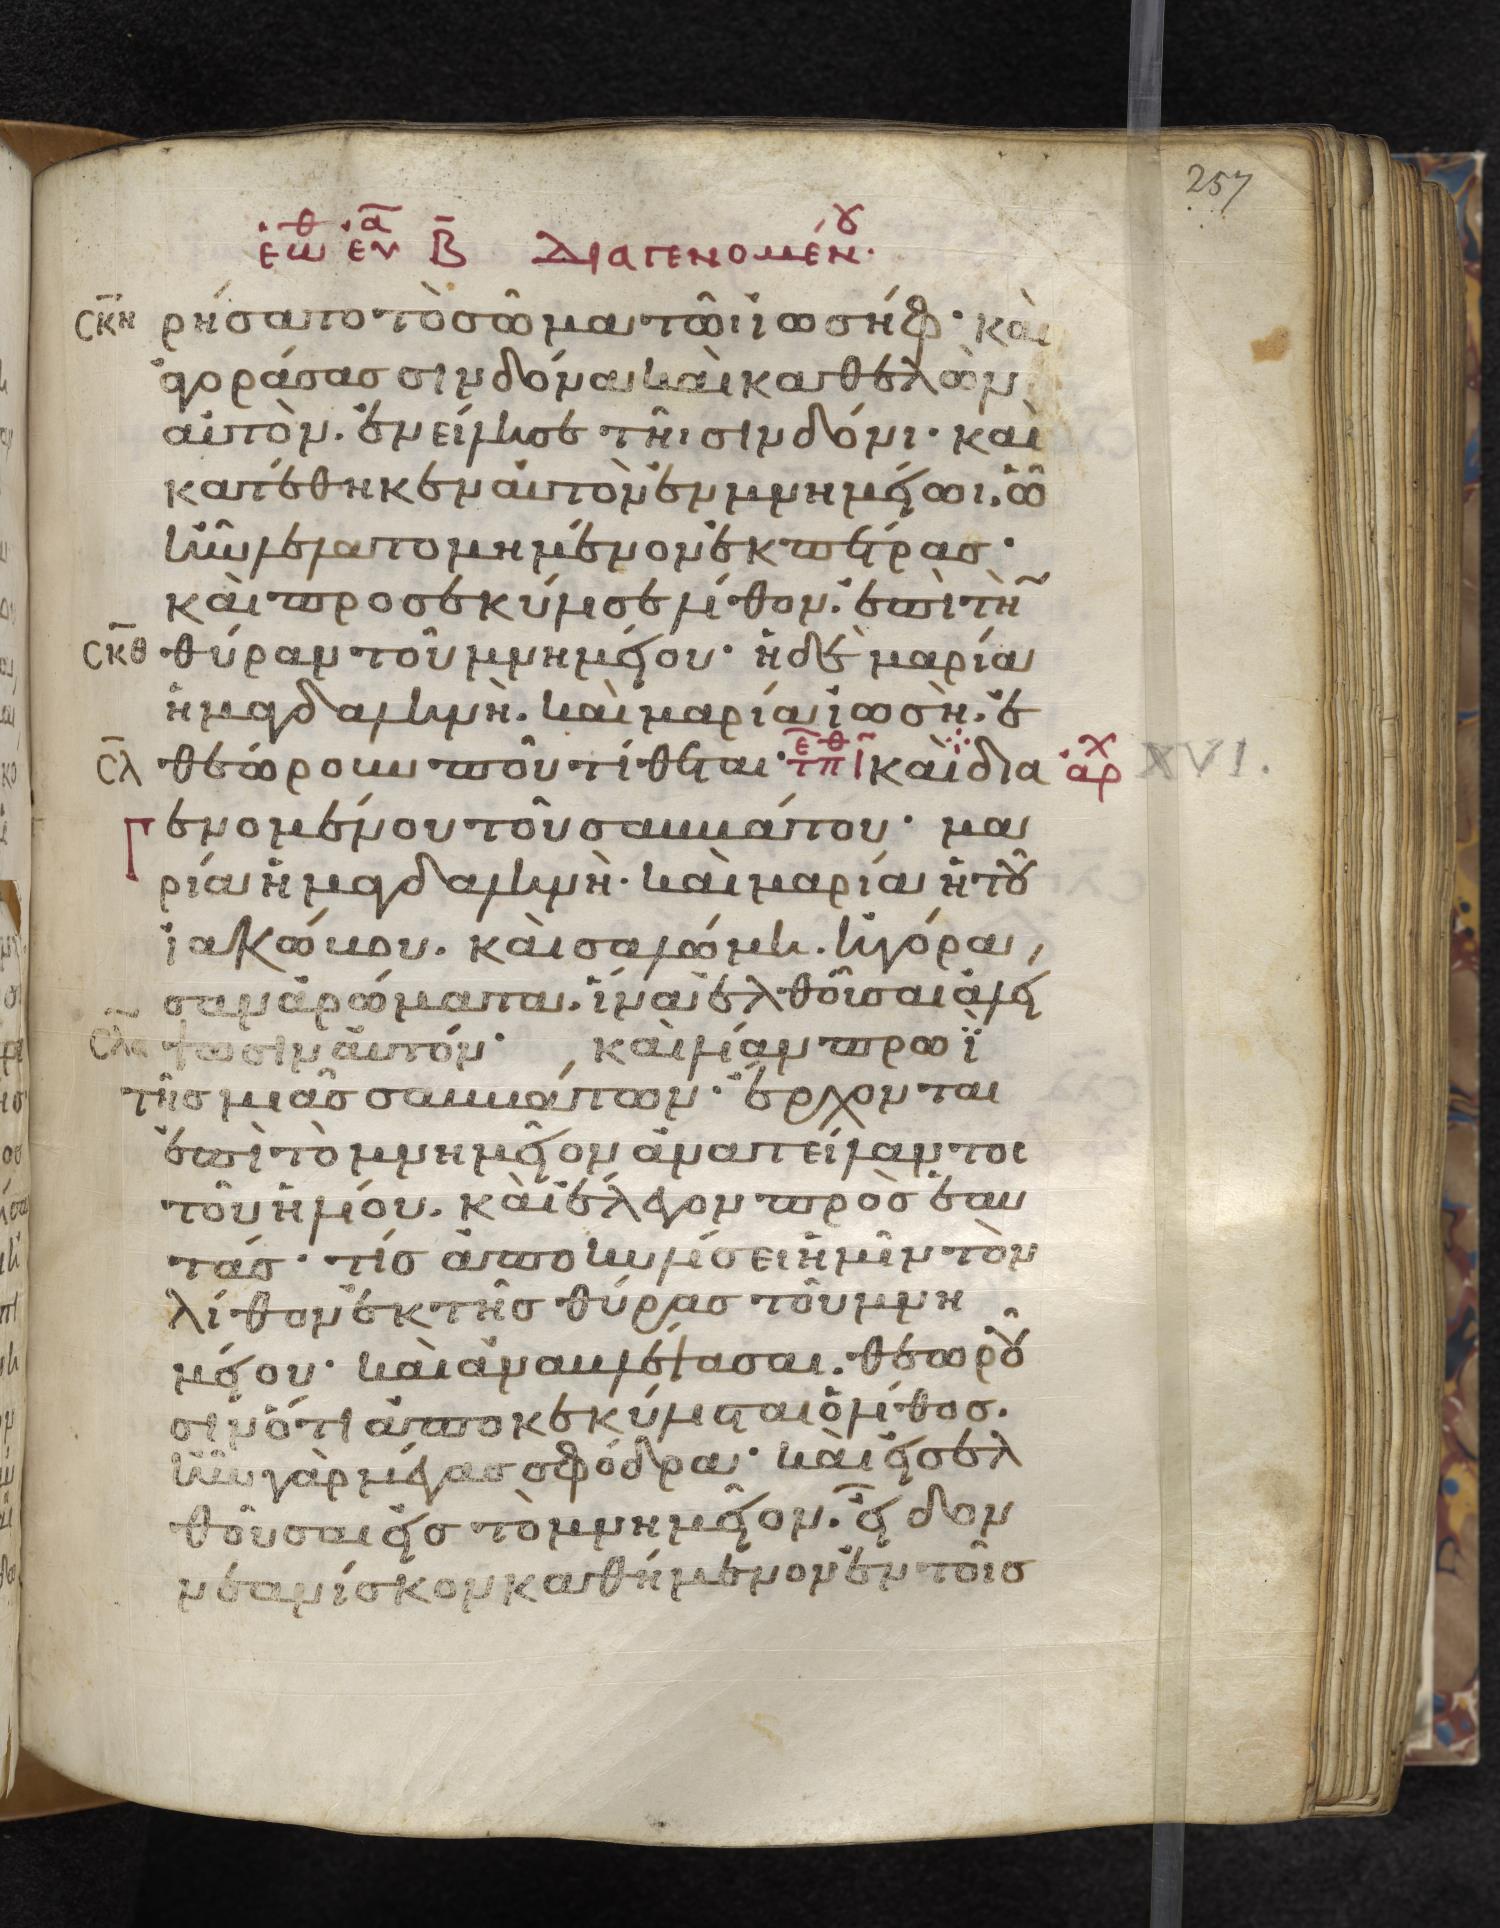 257
ἑωθ ευα β̄ Διαγενομένου.
σκ̄η ρήσατο τὸ σῶμα τῶι ἰωσήφ· καὶ
ἀγοράσας σινδόνα καὶ καθελὼν
αὐτὸν. ἐνείλησε τῆι σινδόνι· καὶ
κατέθηκεν αὐτὸν ἐν μνημείωι. ὃ
ἦν λελατομημένον ἐκ πέτρας·
καὶ προσεκύλισε λίθον. ἐπὶ τὴν
σκ̄θ θύραν τοῦ μνημείου· ἡ δὲ μαρία
ἡ μαγδαληνὴ. καὶ μαρία ἰωσὴ. ἐ
σ̄λ θεώρουν ποῦ τίθεται· τε̄θ̄ καὶ δια αρχ XVI.
Γενομένου τοῦ σαββάτου· μα
ρία ἡ μαγδαληνὴ· καὶ μαρία ἡ τοῦ
ἰακώβου. καὶ σαλώμη. ἠγόρα
σαν ἀρώματα. ἵνα ἐλθοῦσαι ἀλεί
σλ̄α ψωσιν αὐτόν· καὶ λίαν πρωῒ
τῆς μιᾶς σαββάτων· ἔρχονται
ἐπὶ τὸ μνημεῖον ἀνατείλαντος
τοῦ ἡλίου. καὶ ἔλεγον πρὸς ἑαυ
τάς· τίς ἀποκυλίσει ἡμῖν τὸν
λίθον ἐκ τῆς θύρας τοῦ μνη
μείου· καὶ ἀναβλέψασαι. θεωροῦ
σιν ὅτι ἀποκεκύλισται ὁ λίθος.
ἦν γὰρ μέγας σφόδρα· καὶ εἰσελ
θοῦσαι εἰς τὸ μνημεῖον. εἶδον
νεανίσκον καθήμενον ἐν τοῖς